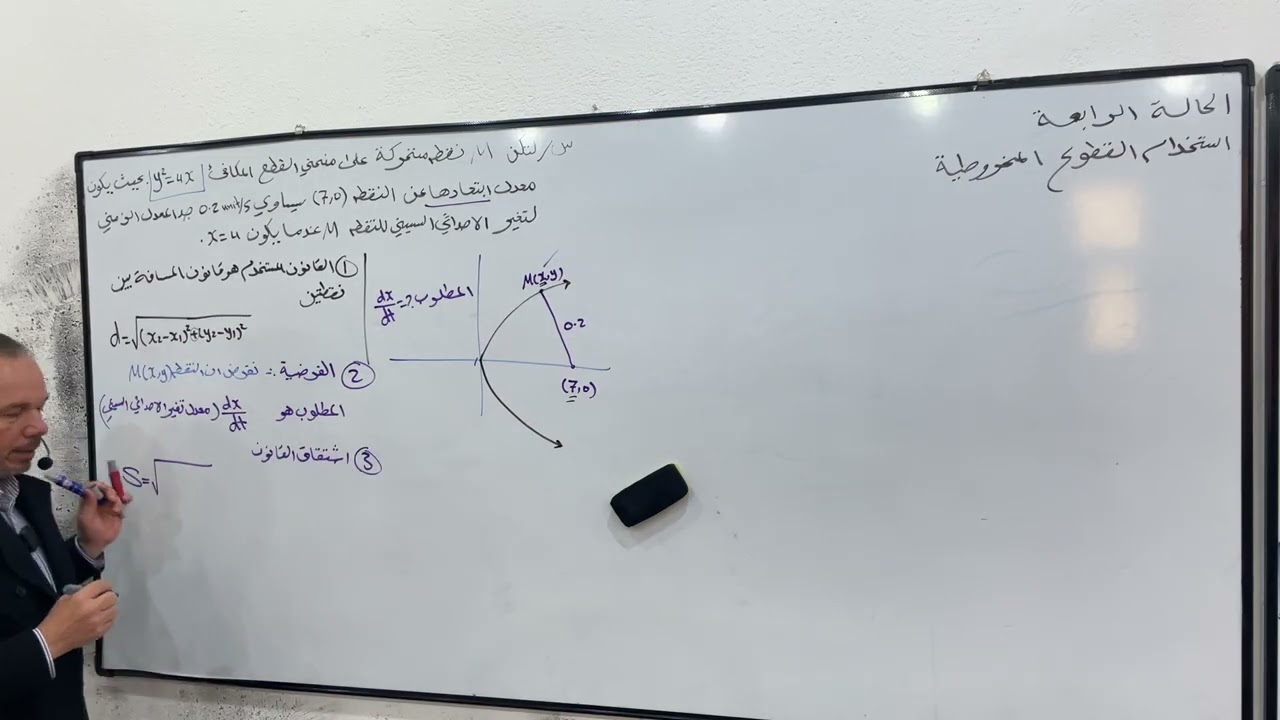 الحالة الرابعة
استخدام القطوع المخروطية
س/ لتكن M نقطة متحركة على منحني القطع المكافئ y²=4x بحيث يكون
معدل ابتعادها عن النقطة (7,0) يساوي 0.2 unit/s جد المعدل الزمني
لتغير الاحداثي السيني للنقطة M عندما يكون x=4.
① القانون المستخدم هو قانون المسافة بين
نقطتين
d=√(x₂-x₁)²+(y₂-y₁)²
② الفرضية :- نفرض ان النقطة M(x,y)
المطلوب هو dx/dt (معدل تغير الاحداثي السيني)
③ اشتقاق القانون
S=√
المطلوب :- dx/dt
M(x,y)
0.2
(7,0)